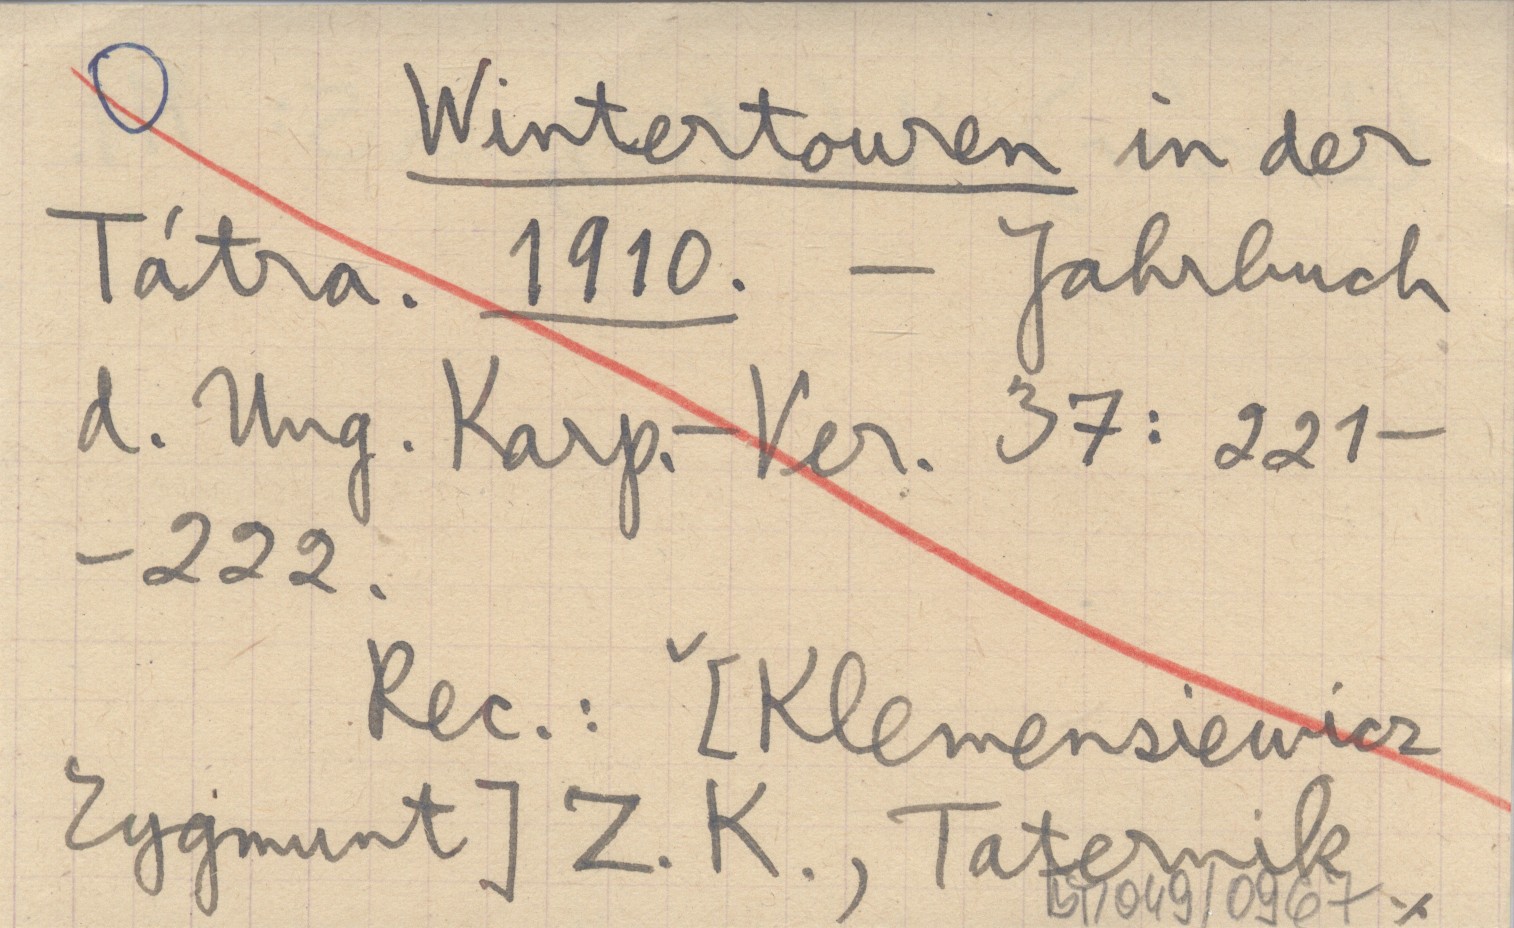 Wintertouren in der
Tátra. 1910. — Jahrbuch
d. Ung. Karp.-Ver. 37: 221-
-222.
Rec.: [Klemensiewicz
Zygmunt] Z. K., Taternik
049/0967